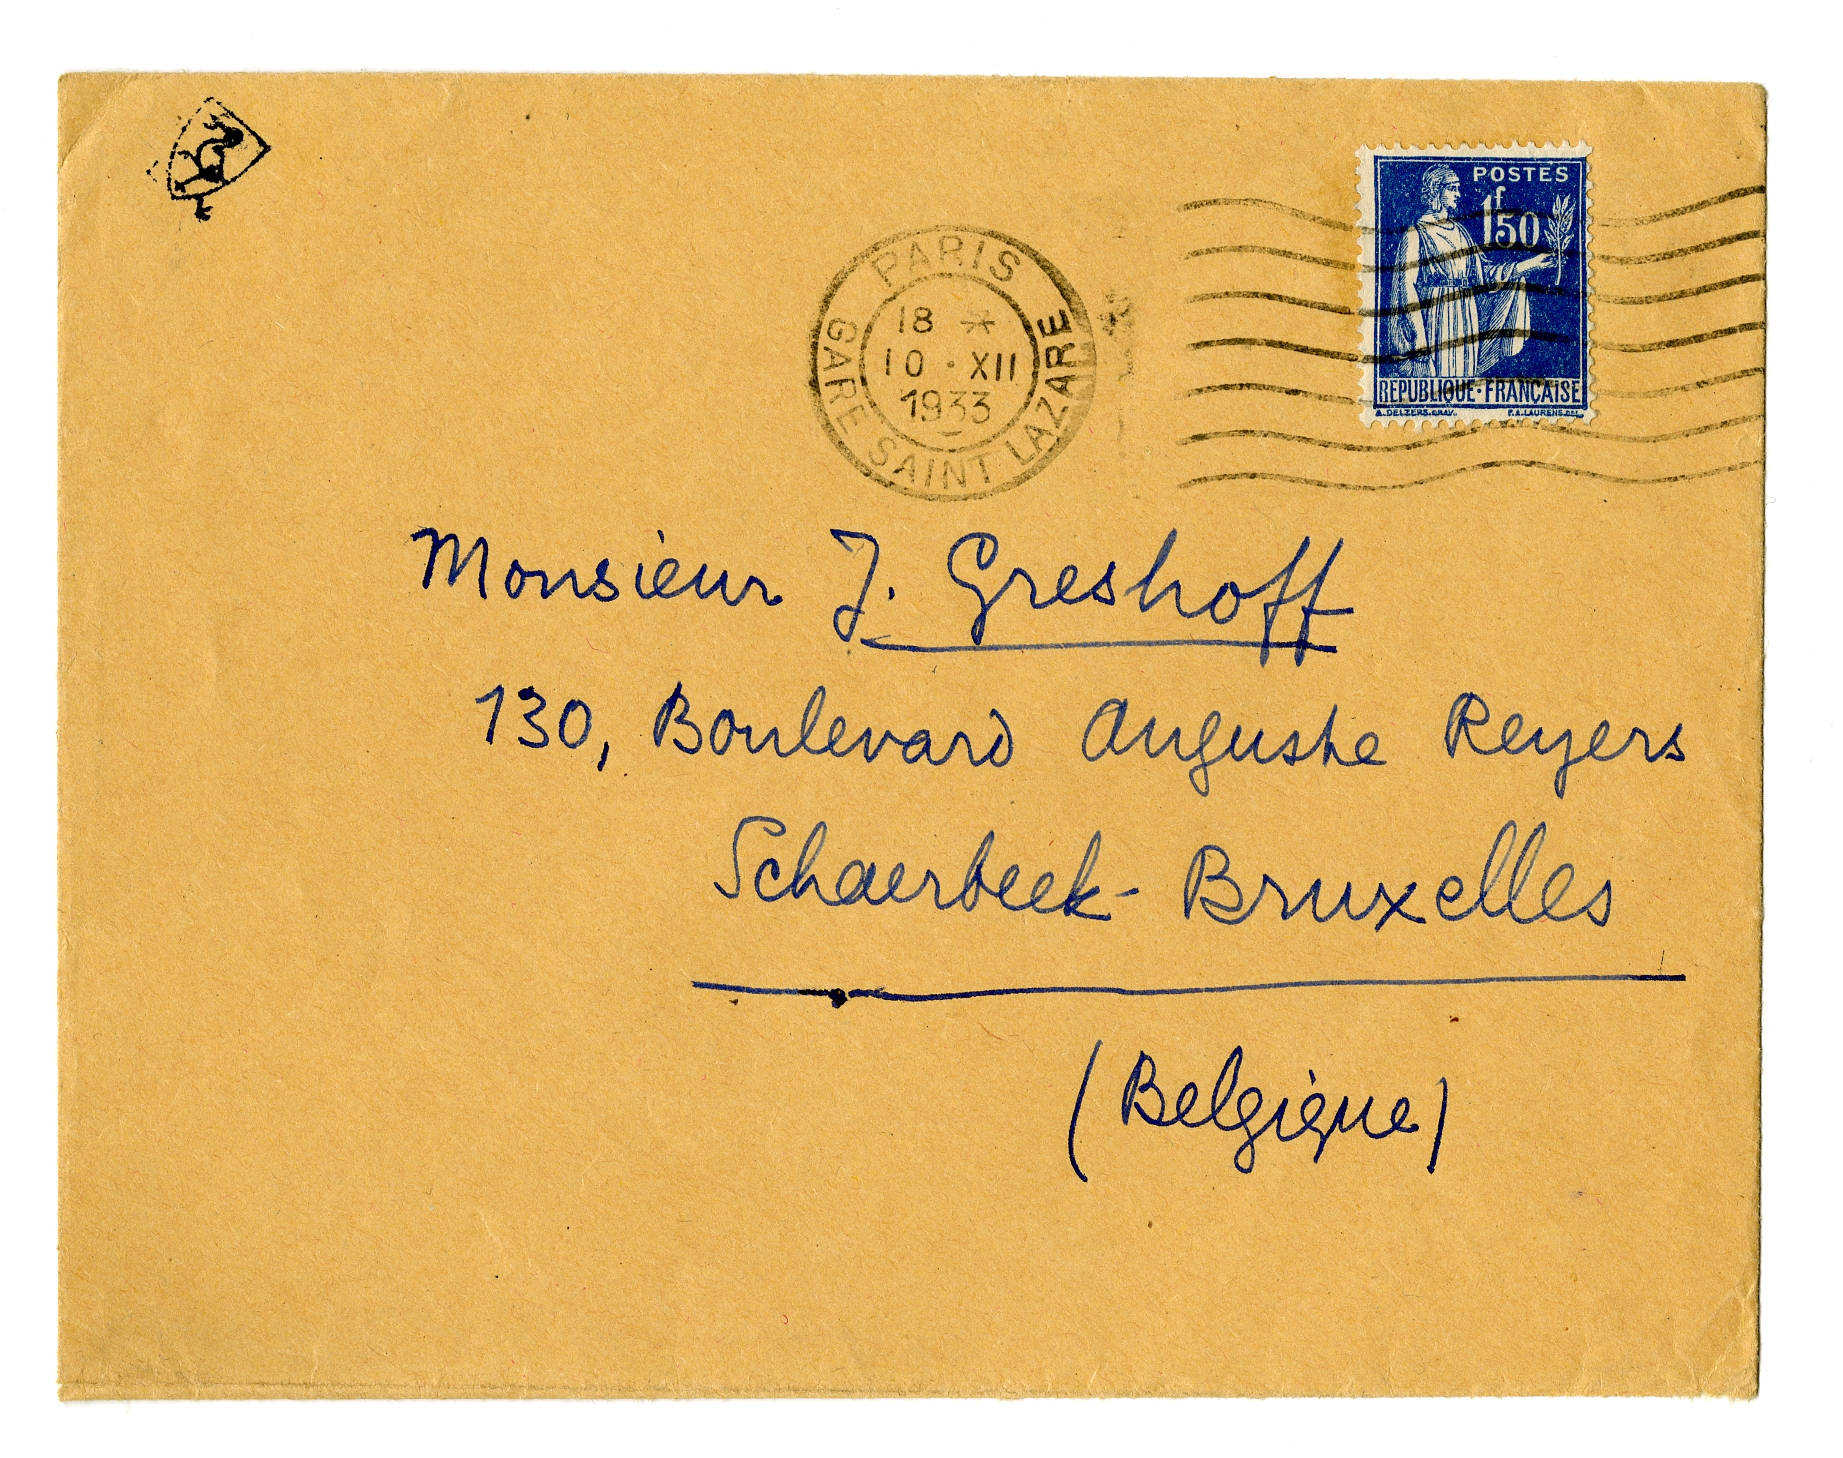 PARIS
18 *
10 · XII
1933
GARE SAINT LAZARE
POSTES
1f50
REPUBLIQUE · FRANÇAISE
A. DELZERS. GRAV. P. A. LAURENS. DEL.
Monsieur J. Greshoff
130, Boulevard Auguste Reyers
Schaerbeek - Bruxelles
(Belgique)